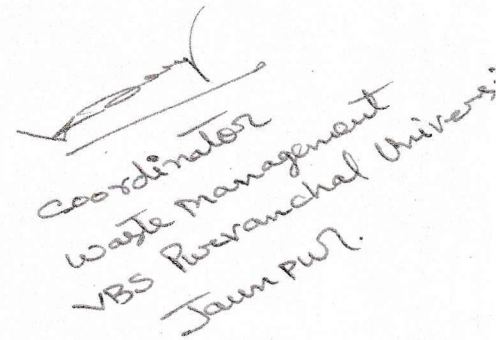 Coordinator
Waste Management
VBS Purvanchal Universi
Jaunpur.